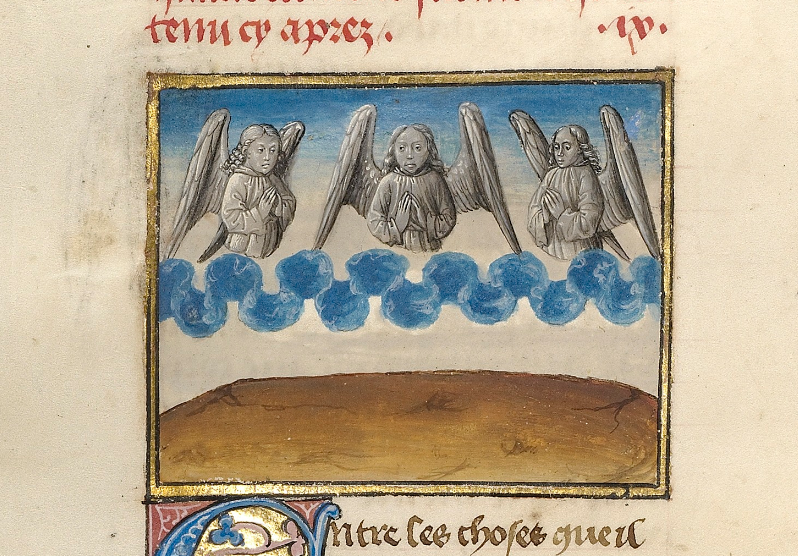 tenu cy aprez. .ix.
Entre les choses que il